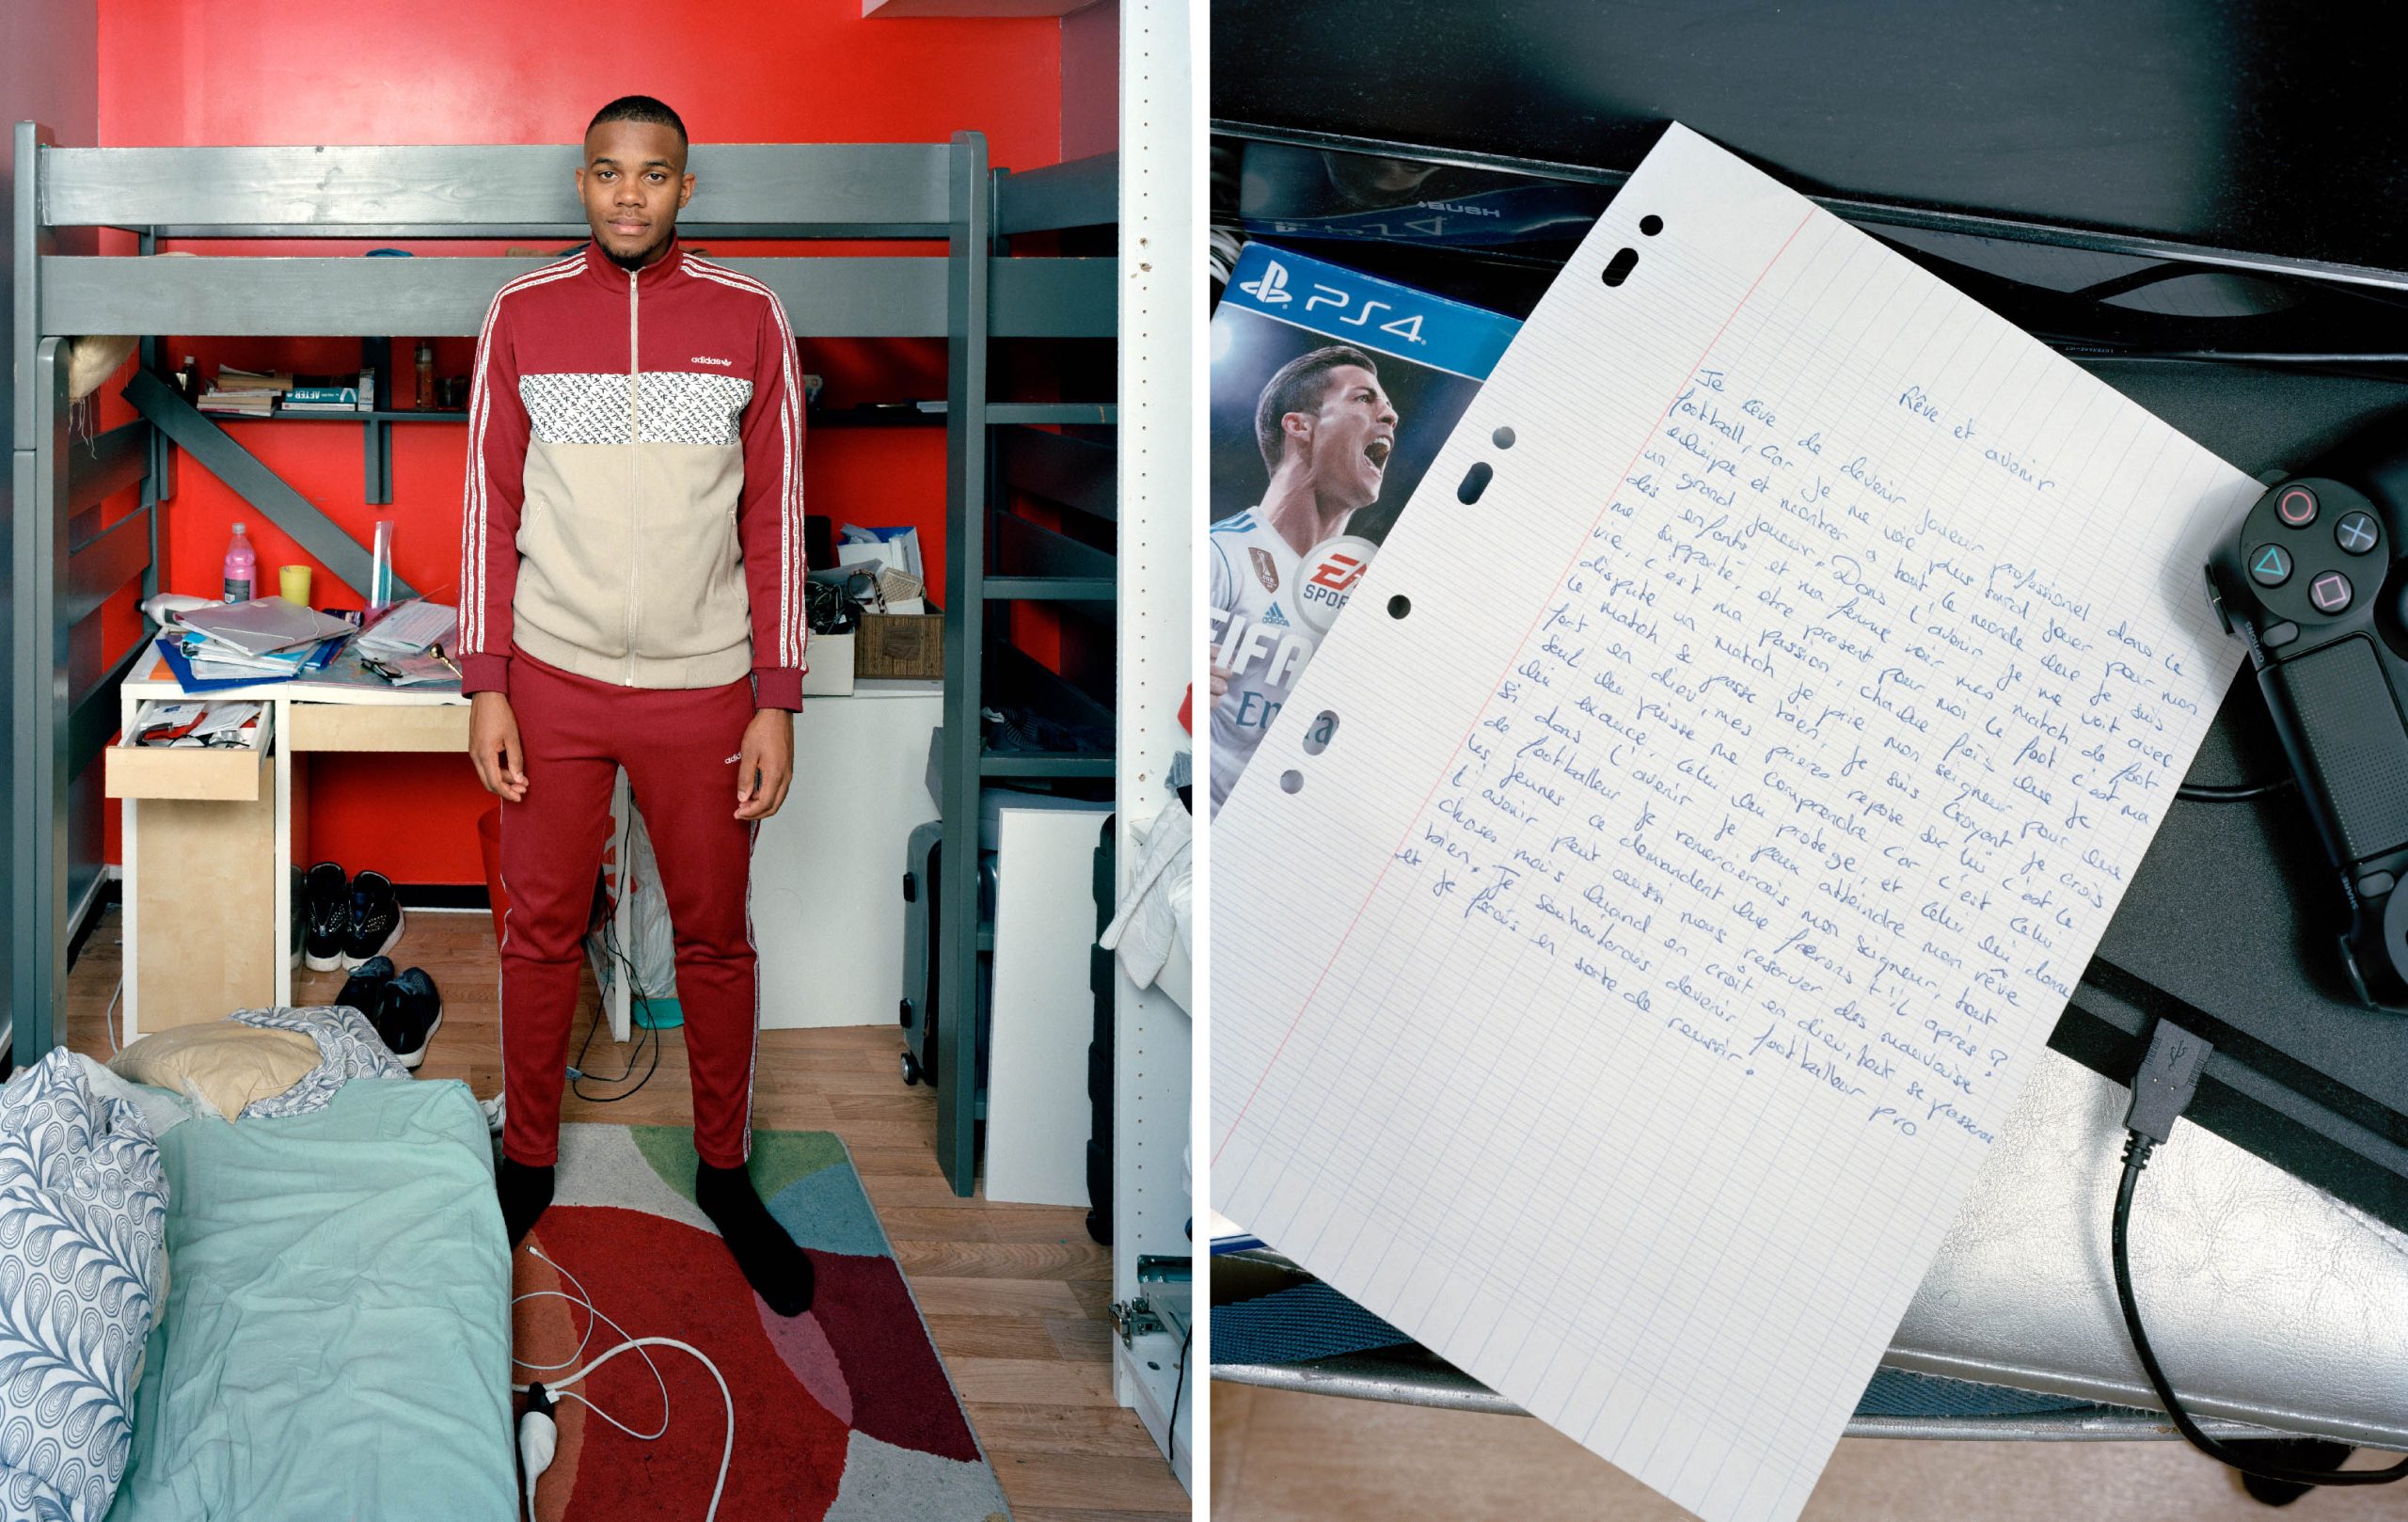 adidas
AFTER
BUSH
PS4
EA
SPOR
adidas
FIFA
SHARE
Rêve et avenir
Je rêve de devenir joueur professionel dans le
football, car je me voie plus tard jouer pour mon
et montrer a tout le monde que je suis
un grand joueur. Dans l'avenir je me voit avec
des enfants et ma femme voir mes match de foot
me supporté, etre présent pour moi le foot c'est ma
vie, c'est ma passion, chaque fois que je
dispute un match je prie mon seigneur pour que
le match se passe bien, je suis croyant je crois
fort en dieu, mes prieres repose sur lui c'est le
seul qui puisse me comprendre car c'est celui
qui exauce, celui qui protege, et celui qui donne
Si dans l'avenir je peux atteindre mon rêve
de footballeur je remercierais mon seigneur, tout
les jeunes ce demandent que ferons t'il après ?
L'avenir peut aussi nous reserver des mauvaise
choses mais quand on croit en dieu, tout se passeras
bien. Je souhaiterais devenir footballeur pro
et je ferais en sorte de reussir.